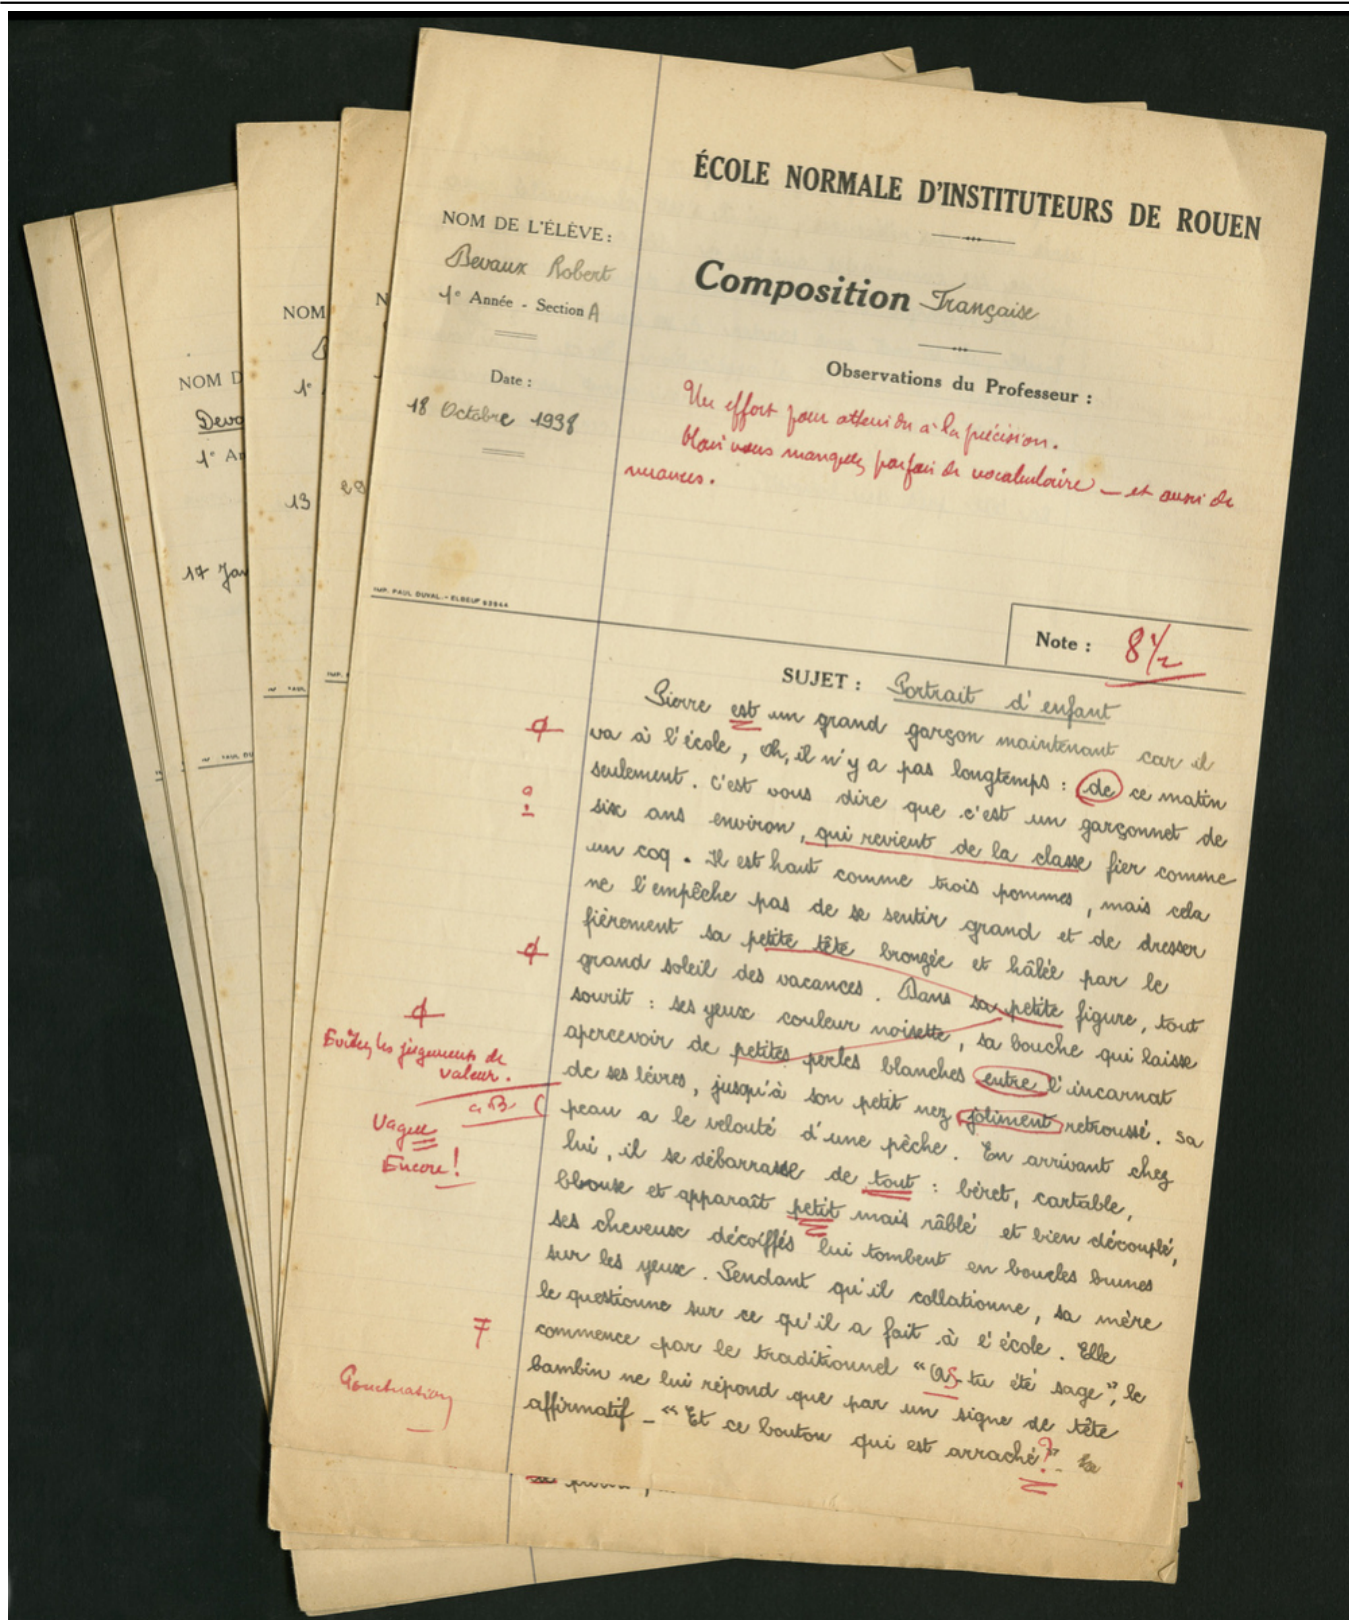 ÉCOLE NORMALE D'INSTITUTEURS DE ROUEN
NOM DE L'ÉLÈVE :
Devaux Robert
1e Année - Section A
Date :
18 Octobre 1938
Composition Française
Observations du Professeur :
Un effort pour atteindre à la précision.
Mais vous manquez parfois de vocabulaire — et aussi de
nuances.
IMP. PAUL DUVAL. - ELBEUF 52944
Note : 8 1/2
SUJET : Portrait d'enfant
Pierre est un grand garçon maintenant car il
va à l'école, oh, il n'y a pas longtemps : de ce matin
seulement. C'est vous dire que c'est un garçonnet de
six ans environ, qui revient de la classe fier comme
un coq. Il est haut comme trois pommes, mais cela
ne l'empêche pas de se sentir grand et de dresser
fièrement sa petite tête bronzée et hâlée par le
grand soleil des vacances. Dans sa petite figure, tout
sourit : ses yeux couleur noisette, sa bouche qui laisse
apercevoir de petites perles blanches entre l'incarnat
de ses lèvres, jusqu'à son petit nez joliment retroussé. Sa
peau a le velouté d'une pêche. En arrivant chez
lui, il se débarrasse de tout : béret, cartable,
blouse et apparaît petit mais râblé et bien découplé,
ses cheveux décoiffés lui tombent en boucles brunes
sur les yeux. Pendant qu'il collationne, sa mère
le questionne sur ce qu'il a fait à l'école. Elle
commence par le traditionnel "As-tu été sage", le
bambin ne lui répond que par un signe de tête
affirmatif - "Et ce bouton qui est arraché ?" - Le
Evitez les jugements de
valeur.
Vague
Encore !
Ponctuation
NOM
1e
13
N
29
NOM D
Deva
1e An
17 Jan